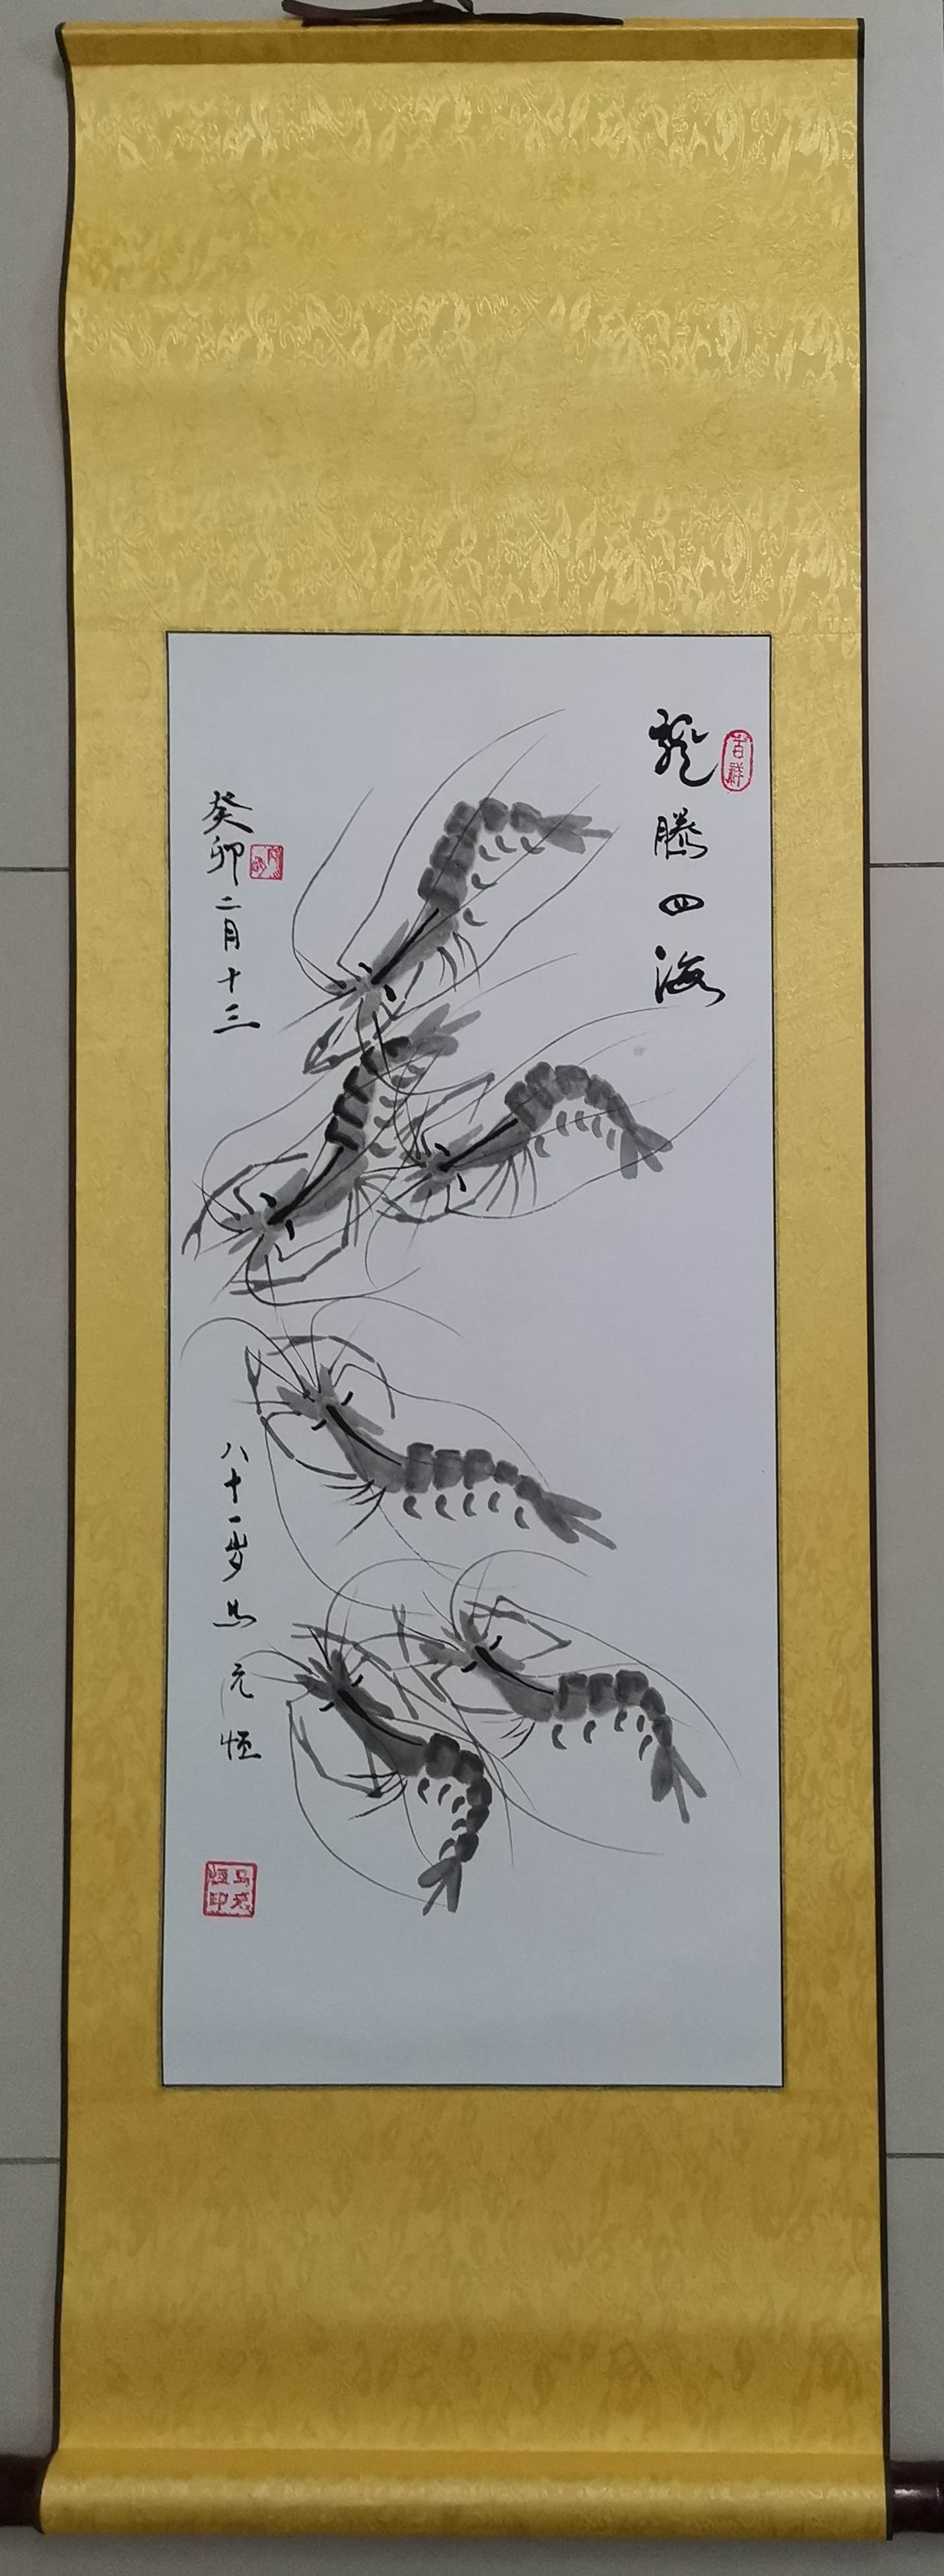 龍騰四海
吉祥
癸卯二月十三
八十一岁馬元恒
马元恒印